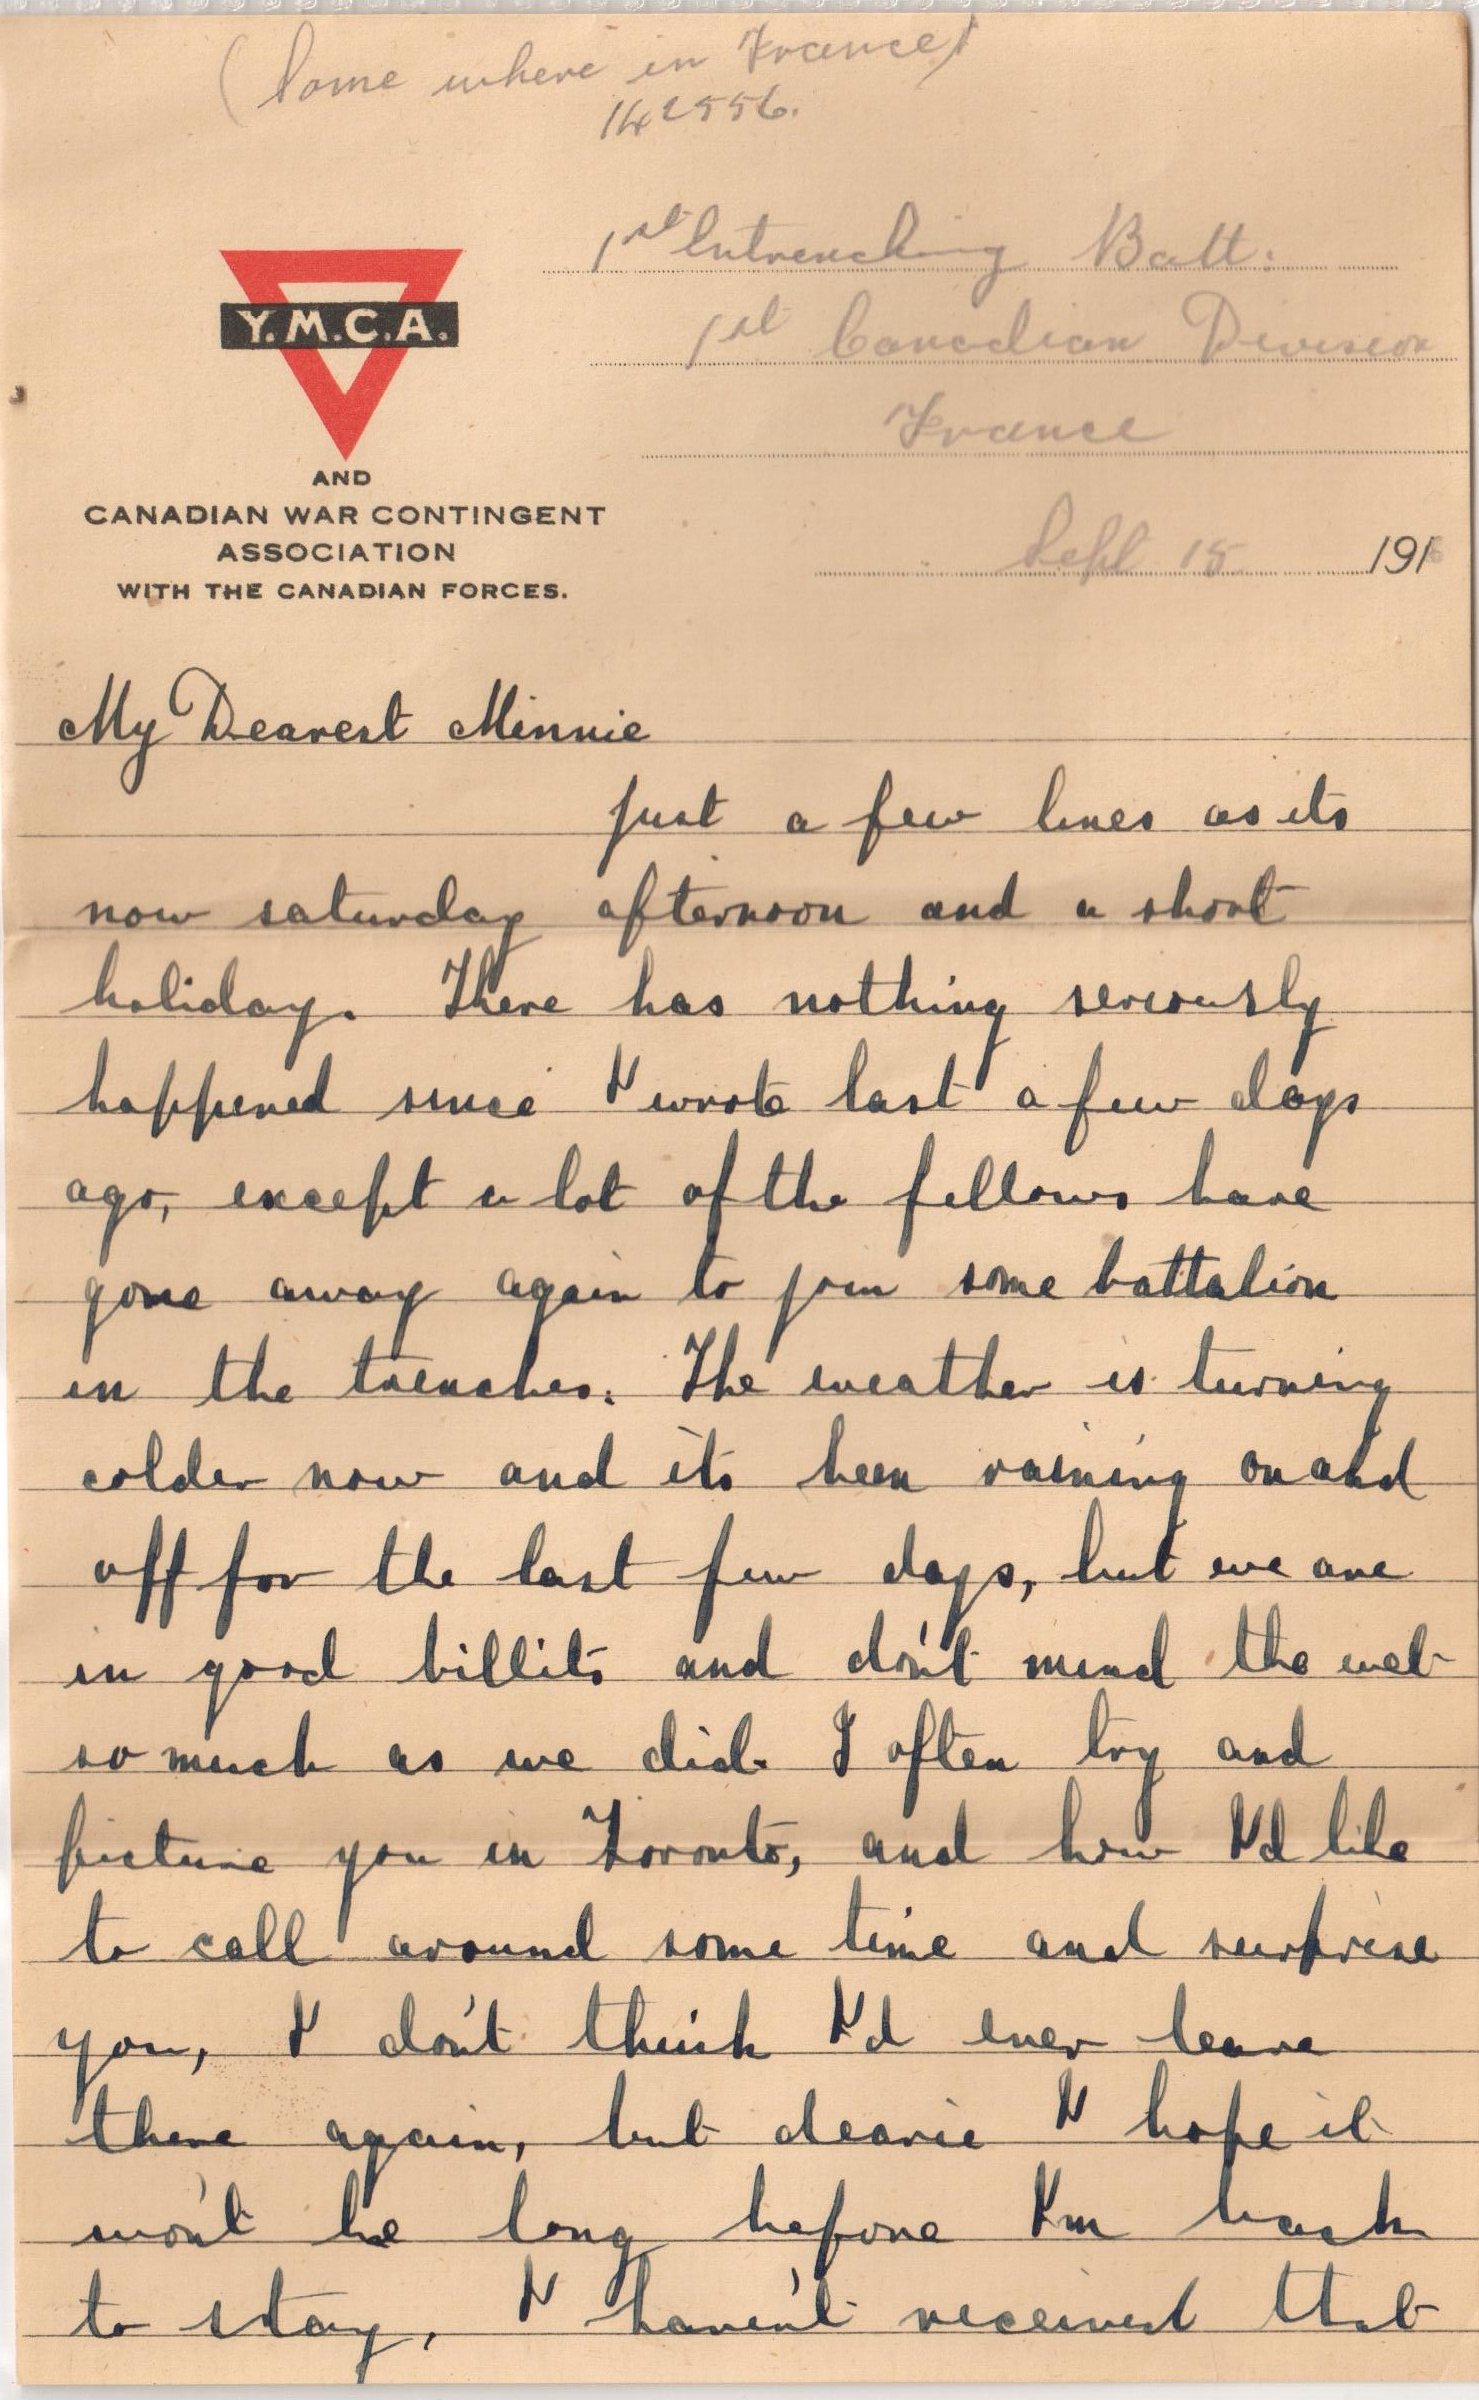 (Some where in France)
142556.
1st Entrenching Batt.
1st Canadian Division
France
Sept 15 1916
Y.M.C.A.
AND
CANADIAN WAR CONTINGENT
ASSOCIATION
WITH THE CANADIAN FORCES.
My Dearest Minnie
Just a few lines as its
now saturday afternoon and a short
holiday. There has nothing seriously
happened since I wrote last a few days
ago, except a lot of the fellows have
gone away again to join some battalion
in the trenches. The weather is turning
colder now and its been raining on and
off for the last few days, but we are
in good billits and don't mind the wet
so much as we did. I often try and
picture you in Toronto, and how I'd like
to call around some time and surprise
you, I don't think I'd ever leave
there again, but dearie I hope it
won't be long before I'm back
to stay, I haven't received that